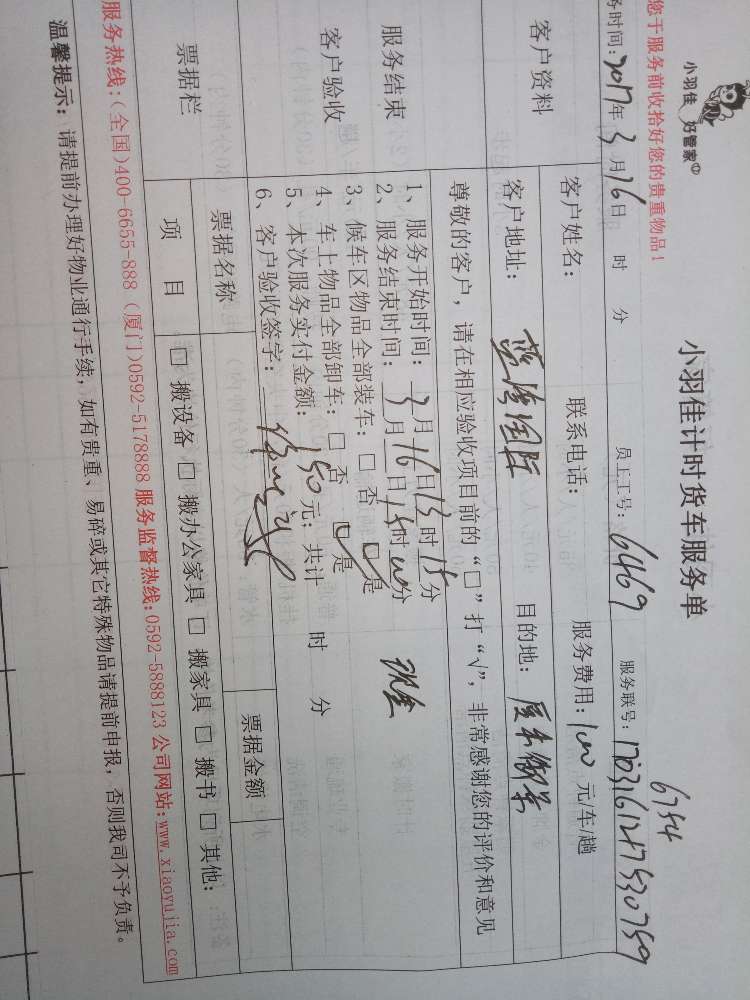 小羽佳 好管家
小羽佳计时货车服务单
6754
您于服务前收拾好您的贵重物品!
务时间: 2017年 3 月 16日 时 分 员工工号: 6469 服务联号: 170316121753 0759
客户资料
客户姓名: 联系电话: 服务费用: 100 元/车/趟
客户地址: 蓝湾国际 目的地:
尊敬的客户, 请在相应验收项目前的“□”打“√”, 非常感谢您的评价和意见
服务结束
客户验收
1、服务开始时间: 3 月 16 日 13 时 15 分
2、服务结束时间: 3 月 16 日 15 时 00 分 现金
3、候车区物品全部装车: □ 否 □ 是
4、车上物品全部卸车: □ 否 □ 是
5、本次服务实付金额: 150 元; 共计 时 分
6、客户验收签字:
票据栏
票据名称 票据金额
项 目 □ 搬设备 □ 搬办公家具 □ 搬家具 □ 搬书 □ 其他:
服务热线:(全国)400-6655-888 (厦门)0592-5178888 服务监督热线:0592-5888123 公司网站:www.xiaoyujia.com
温馨提示: 请提前办理好物业通行手续, 如有贵重、易碎或其它特殊物品请提前申报, 否则我司不予负责。